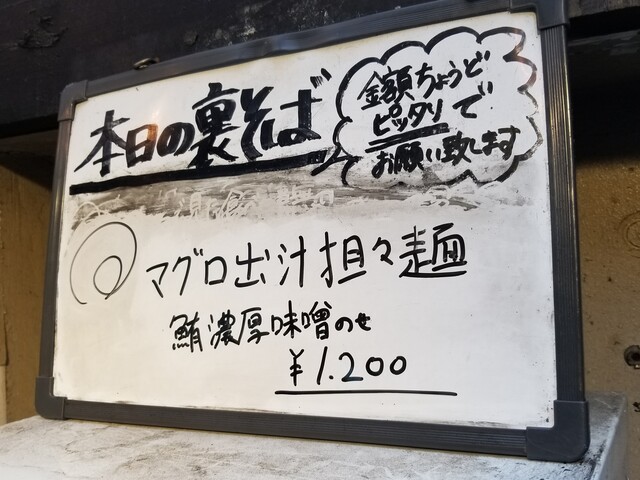 本日の裏そば
金額ちょうど
ピッタリで
お願い致します
マグロ出汁担々麺
鮪濃厚味噌のせ
¥1.200